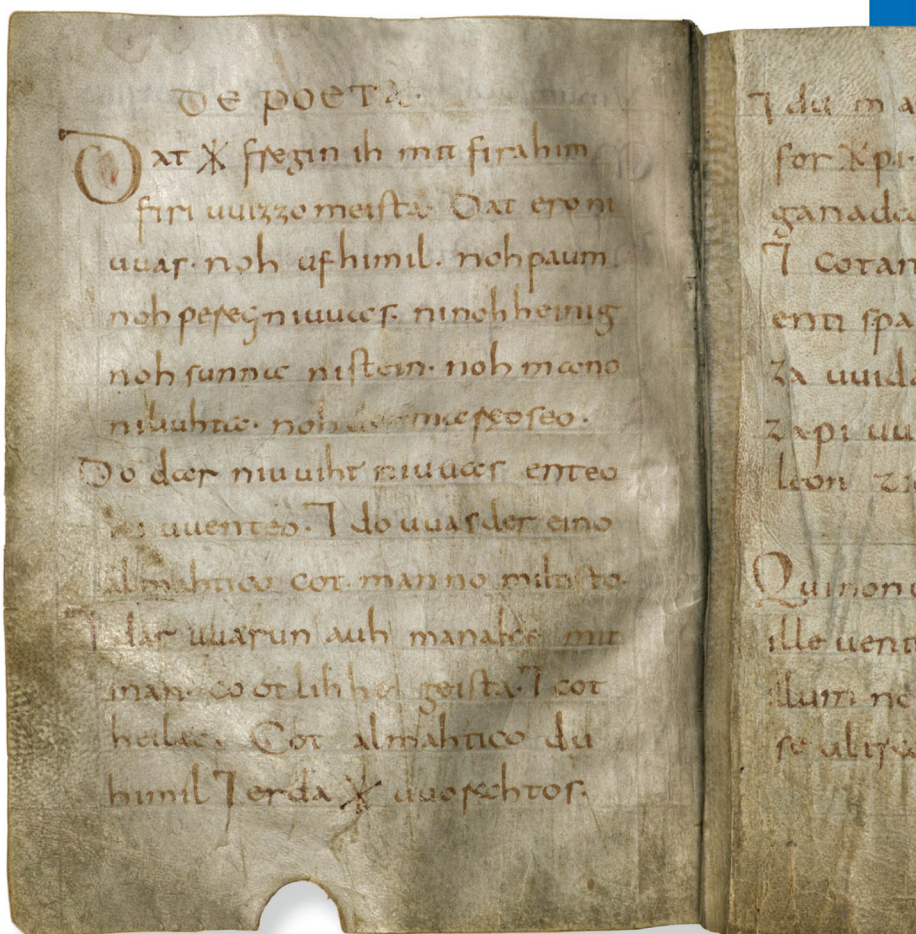 DE POETA.
Dat ᚼ fregin ih mit firahim
firi uuizzo meista. Dat ero ni
uuas. noh ufhimil. noh paum
noh pereg niuuas. ninohheinig
noh sunna nistein. noh mano
niliuhta. noh der mareoseo.
Do dar niuuiht niuuas enteo
ni uuenteo. ⁊ do uuas der eino
almahtico cot manno miltisto.
⁊ dar uuarun auh manake mit
inan. cootlihhe geista. ⁊ cot
heilac. Cot almahtico du
himil ⁊ erda ᚼ uuorahtos.
⁊ du ma
for ᚼ pi.
ganada
⁊ cotan
enti spa
za uuida
zapi uu
leon za
Qui non
ille uent
illum ne
se